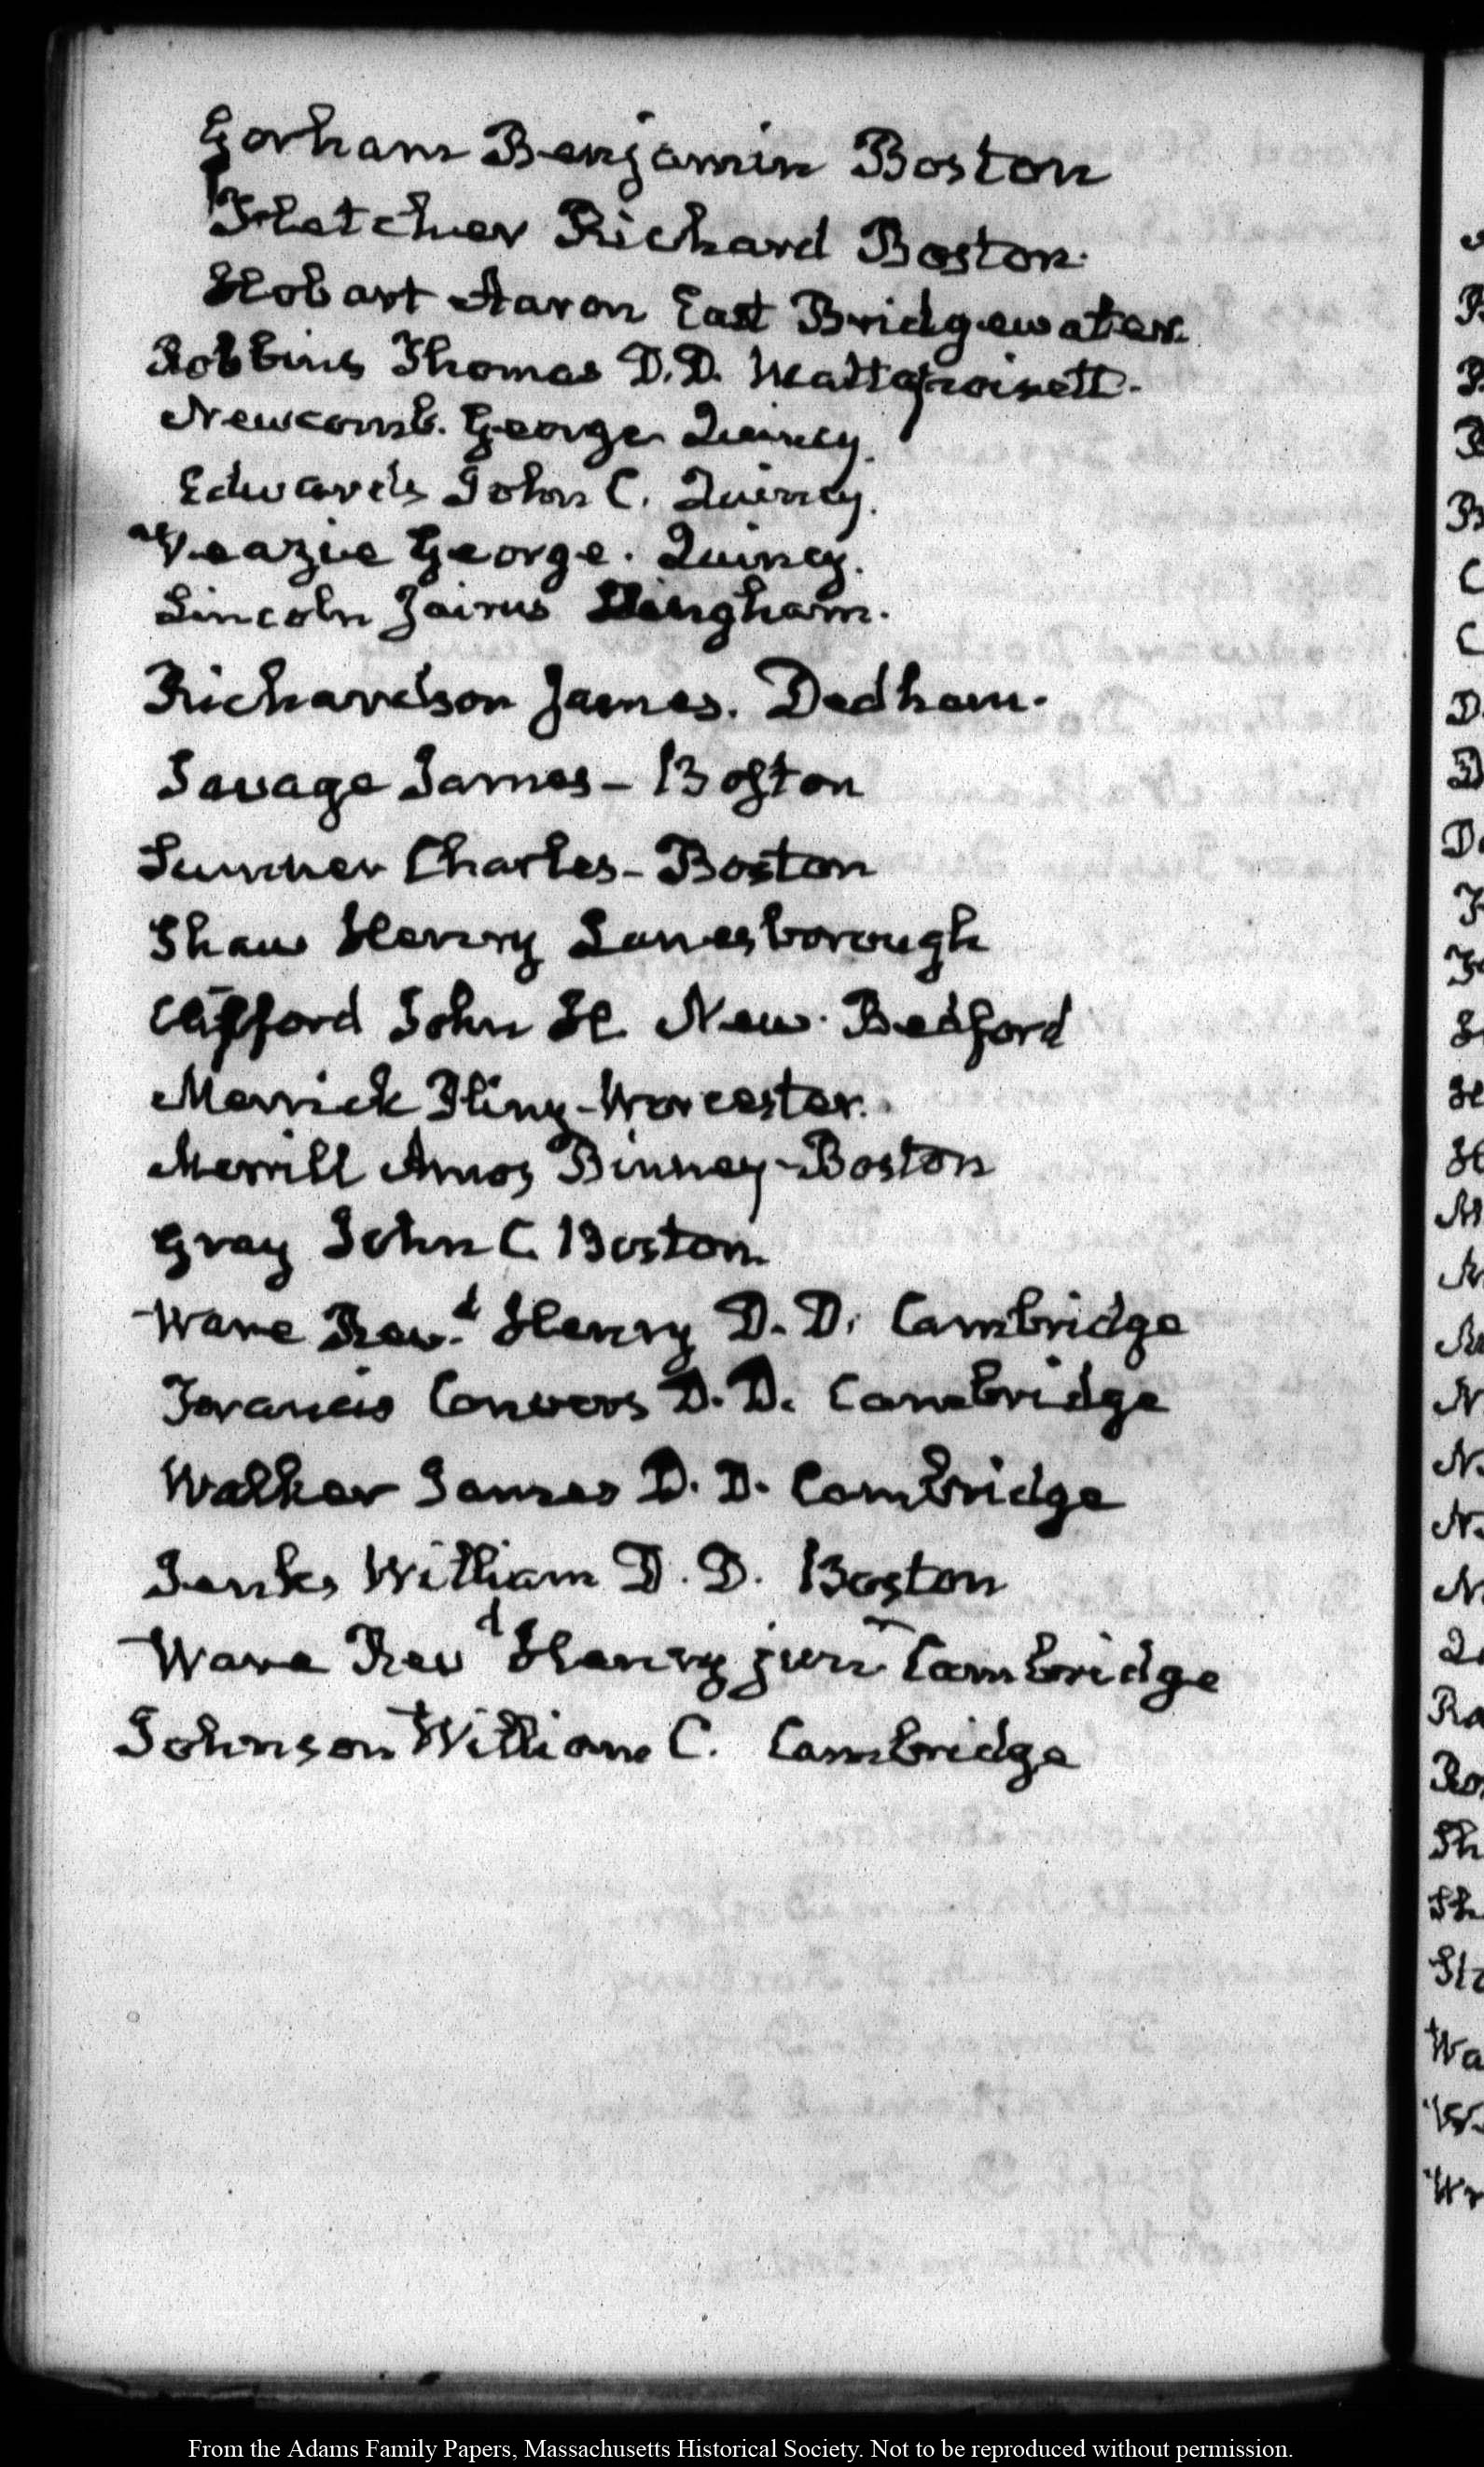 Gorham Benjamin Boston
Fletcher Richard Boston.
Hobart Aaron East Bridgewater.
Robbins Thomas D.D. Mattapoisett.
Newcomb. George Quincy.
Edwards John C. Quincy.
Veazie George. Quincy.
Lincoln Jairus Hingham.
Richardson James. Dedham.
Savage James – Boston
Sumner Charles – Boston
Shaw Henry Lanesborough
Clifford John H. New Bedford
Merrick Pliny – Worcester.
Merrill Amos Binney – Boston
Gray John C. Boston
Ware Rev.d Henry D. D. Cambridge
Francis Convers D. D. Cambridge
Walker James D. D. Cambridge
Jenks William D. D. Boston
Ware Revd Henry junr Cambridge
Johnson William C. Cambridge
From the Adams Family Papers, Massachusetts Historical Society. Not to be reproduced without permission.